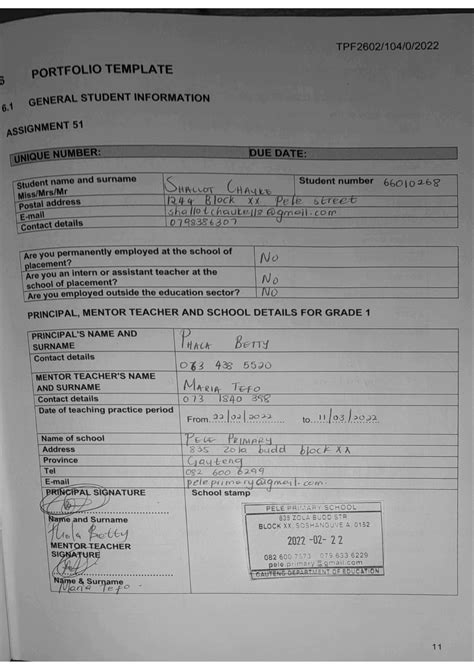 TPF2602/104/0/2022
6 PORTFOLIO TEMPLATE
6.1 GENERAL STUDENT INFORMATION
ASSIGNMENT 51
UNIQUE NUMBER: DUE DATE:
Student name and surname Shallot Chauke Student number 66010268
Miss/Mrs/Mr
Postal address 1244 Block xx Pele street
E-mail
Contact details 0798386307
Are you permanently employed at the school of placement? No
Are you an intern or assistant teacher at the school of placement? No
Are you employed outside the education sector? No
PRINCIPAL, MENTOR TEACHER AND SCHOOL DETAILS FOR GRADE 1
PRINCIPAL'S NAME AND SURNAME Betty
Contact details 063 438 5520
MENTOR TEACHER'S NAME AND SURNAME Maria Tefo
Contact details 073 1840 398
Date of teaching practice period From 22/02/2022 to 11/03/2022
Name of school Pele Primary
Address 835 Zola budd block XX
Province Gauteng
Tel 082 600 6299
E-mail pele primary@gmail.com
PRINCIPAL SIGNATURE School stamp
Name and Surname
Betty
MENTOR TEACHER
SIGNATURE
Name & Surname
Maria Tefo
PELE PRIMARY SCHOOL
835 ZOLA BUDD STR
BLOCK XX SOSHANGUVE A 0152
2022 -02- 22
pele.primary@gmail.com
GAUTENG DEPARTMENT OF EDUCATION
11